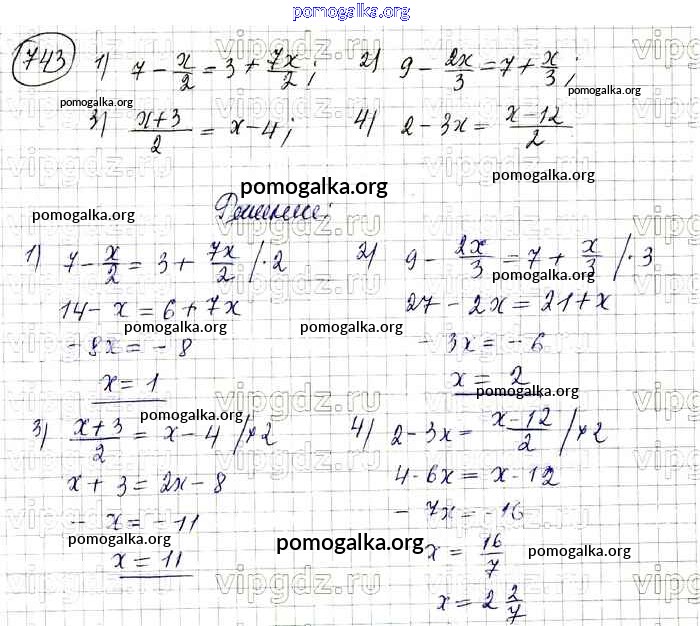 pomogalka.org
743 1) 7 - x/2 = 3 + 7x/2; 2) 9 - 2x/3 = 7 + x/3;
pomogalka.org pomogalka.org
3) (x+3)/2 = x-4; 4) 2-3x = (x-12)/2
pomogalka.org
pomogalka.org pomogalka.org
Решение:
1) 7 - x/2 = 3 + 7x/2 /·2 2) 9 - 2x/3 = 7 + x/3 /·3
pomogalka.org
14 - x = 6 + 7x 27 - 2x = 21 + x
pomogalka.org pomogalka.org
- 8x = - 8 - 3x = - 6
x = 1 x = 2
pomogalka.org pomogalka.org
3) (x+3)/2 = x - 4 /×2 4) 2-3x = (x-12)/2 /×2
x + 3 = 2x - 8 4-6x = x-12
- x = -11 - 7x = -16
pomogalka.org pomogalka.org pomogalka.org
x = 11 x = 16/7
x = 2 2/7
vipgdz.ru